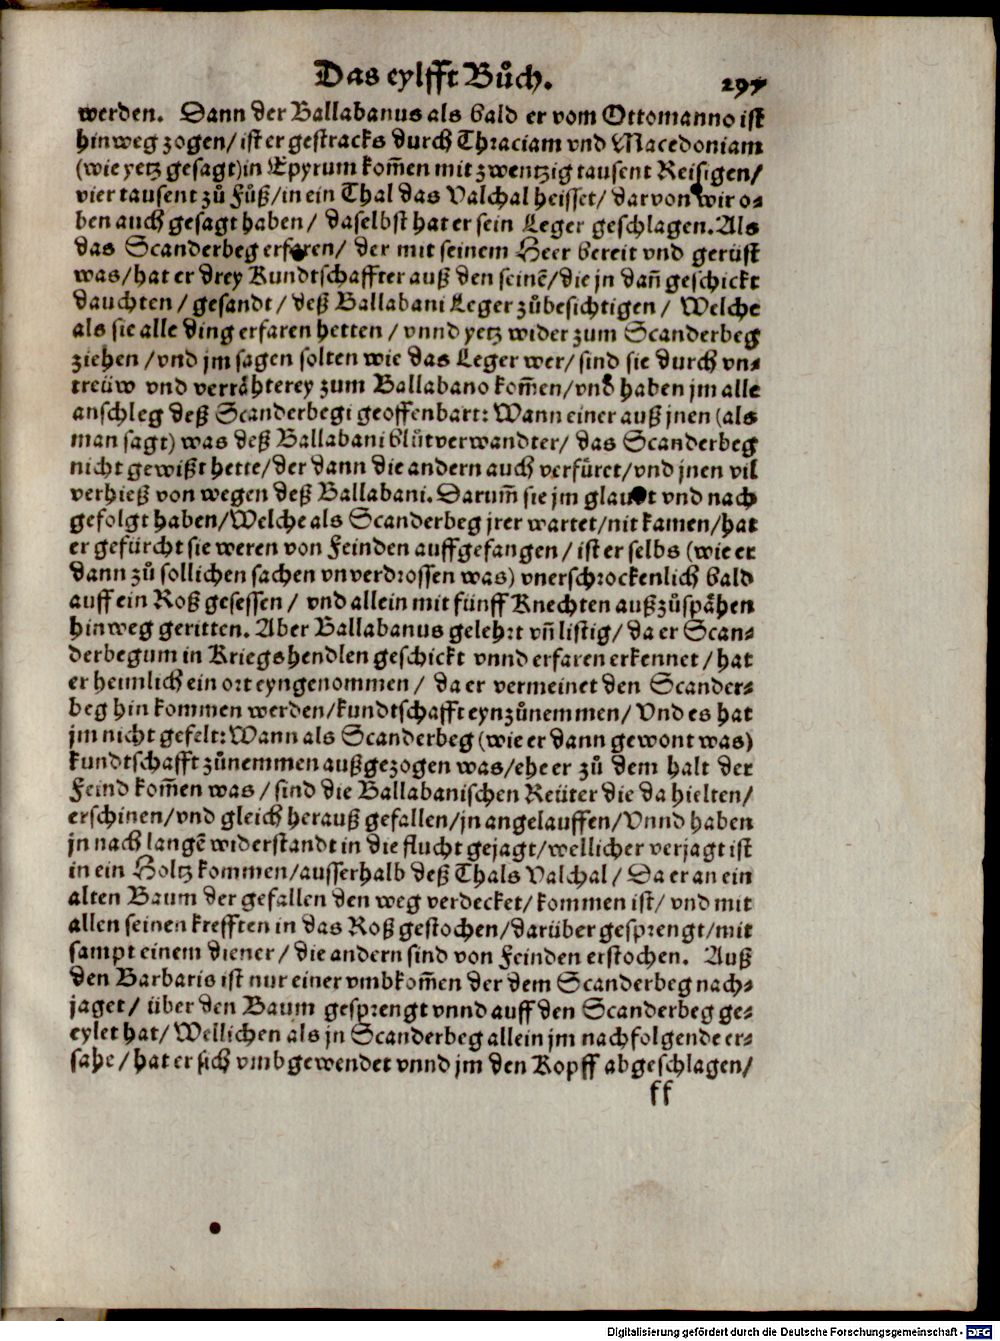 Das eylfft Bůch. 297
werden. Dann der Ballabanus als bald er vom Ottomanno ist
hinweg zogen/ ist er gestracks durch Thraciam vnd Macedoniam
(wie yetz gesagt)in Epyrum kom̃en mit zwentzig tausent Reisigen/
vier tausent zů Fůß/in ein Thal das Valchal heisset/ darvon wir o-
ben auch gesagt haben/ daselbst hat er sein Leger geschlagen. Als
das Scanderbeg erfaren/ der mit seinem Heer bereit vnd gerüst
was/hat er drey Kundtschaffter auß den seinẽ/die jn dañ geschickt
dauchten/ gesandt/ deß Ballabani Leger zůbesichtigen/ Welche
als sie alle ding erfaren hetten/ vnnd yetz wider zum Scanderbeg
ziehen/vnd jm sagen solten wie das Leger wer/ sind sie durch vn-
treüw vnd verrähterey zum Ballabano kom̃en/vnd haben jm alle
anschleg deß Scanderbegi geoffenbart: Wann einer auß jnen (als
man sagt) was deß Ballabani blůtverwandter/ das Scanderbeg
nicht gewißt hette/der dann die andern auch verfüret/vnd jnen vil
verhieß von wegen deß Ballabani. Darum̃ sie jm glaubt vnd nach
gefolgt haben/Welche als Scanderbeg jrer wartet/nit kamen/hat
er gefürcht sie weren von Feinden auffgefangen/ ist er selbs (wie er
dann zů sollichen sachen vnverdrossen was) vnerschrockenlich bald
auff ein Roß gesessen/ vnd allein mit fünff Knechten außzůspähen
hinweg geritten. Aber Ballabanus gelehrt vñ listig/ da er Scan-
derbegum in Kriegshendlen geschickt vnnd erfaren erkennet/hat
er heimlich ein ort eyngenommen/ da er vermeinet den Scander-
beg hin kommen werden/kundtschafft eynzůnemmen/ Vnd es hat
jm nicht gefelt: Wann als Scanderbeg (wie er dann gewont was)
kundtschafft zůnemmen außgezogen was/ehe er zů dem halt der
Feind kom̃en was/ sind die Ballabanischen Reüter die da hielten/
erschinen/vnd gleich herauß gefallen/jn angelauffen/Vnnd haben
jn nach langẽ widerstandt in die flucht gejagt/wellicher verjagt ist
in ein Holtz kommen/ausserhalb deß Thals Valchal/ Da er an ein
alten Baum der gefallen den weg verdecket/kommen ist/ vnd mit
allen seinen krefften in das Roß gestochen/darüber gesprengt/mit
sampt einem diener/ die andern sind von Feinden erstochen. Auß
den Barbaris ist nur einer vmbkom̃en der dem Scanderbeg nach-
jaget/ über den Baum gesprengt vnnd auff den Scanderbeg ge-
eylet hat/ Wellichen als jn Scanderbeg allein jm nachfolgende er-
sahe/hat er sich vmbgewendet vnnd jm den Kopff abgeschlagen/
ff
Digitalisierung gefördert durch die Deutsche Forschungsgemeinschaft - DFG